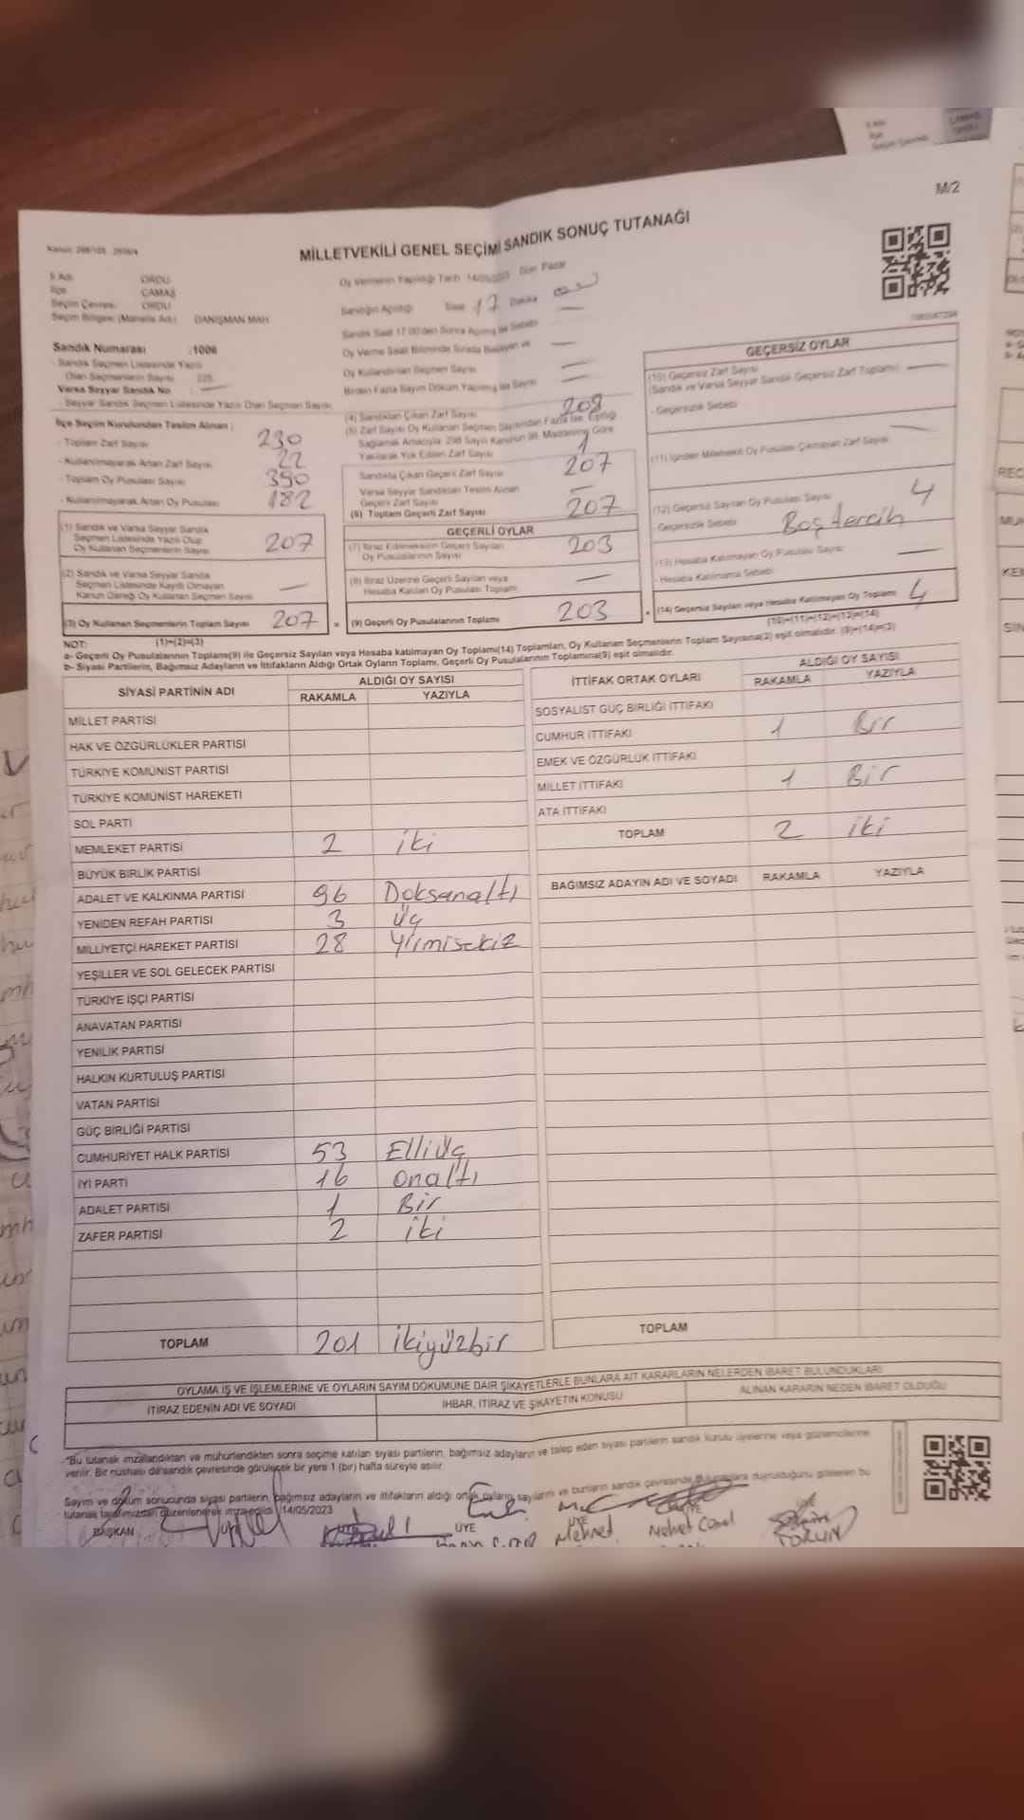 M/2
MİLLETVEKİLİ GENEL SEÇİMİ SANDIK SONUÇ TUTANAĞI
İl Adı ORDU
İlçe ÇAMAŞ
Seçim Çevresi ORDU
Seçim Bölgesi (Mahalle Adı) DANIŞMAN MAH
Sandık Numarası :1006
- Sandık Seçmen Listesinde Yazılı
Olan Seçmenlerin Sayısı
Varsa Seyyar Sandık No
- Seyyar Sandık Seçmen Listesinde Yazılı Olan Seçmen Sayısı
İlçe Seçim Kurulundan Teslim Alınan :
- Toplam Zarf Sayısı 230
- Kullanılmayarak Artan Zarf Sayısı 22
- Toplam Oy Pusulası Sayısı 390
- Kullanılmayarak Artan Oy Pusulası 182
(1) Sandık ve Varsa Seyyar Sandık
Seçmen Listesinde Yazılı Olup
Oy Kullanan Seçmenlerin Sayısı 207
(2) Sandık ve Varsa Seyyar Sandık
Seçmen Listesinde Kayıtlı Olmayan
Kanun Gereği Oy Kullanan Seçmen Sayısı —
(3) Oy Kullanan Seçmenlerin Toplam Sayısı 207
(1)+(2)=(3)
Oy Vermenin Yapıldığı Tarih Gün Pazar
Sandığın Açıldığı Saat 17 Dakika
Sandık Saat 17.00'den Sonra Açılmış ise Sebebi —
Oy Verme Saati Bitiminde Sırada Bekleyen ve
Oy Kullandırılan Seçmen Sayısı —
Birden Fazla Sayım Döküm Yapılmış ise Sayısı —
(4) Sandıktan Çıkan Zarf Sayısı 208
(5) Zarf Sayısı Oy Kullanan Seçmen Sayısından Fazla ise, Eşitliği
Sağlamak Amacıyla 298 Sayılı Kanunun 98. Maddesine Göre
Yakılarak Yok Edilen Zarf Sayısı 1
Sandıkta Çıkan Geçerli Zarf Sayısı 207
Varsa Seyyar Sandıktan Teslim Alınan
Geçerli Zarf Sayısı —
(6) Toplam Geçerli Zarf Sayısı 207
GEÇERLİ OYLAR
(7) İtiraz Edilmeksizin Geçerli Sayılan
Oy Pusulalarının Sayısı 203
(8) İtiraz Üzerine Geçerli Sayılan veya
Hesaba Katılan Oy Pusulası Toplamı —
(9) Geçerli Oy Pusulalarının Toplamı 203
GEÇERSİZ OYLAR
(10) Geçersiz Zarf Sayısı
(Sandık ve Varsa Seyyar Sandık Geçersiz Zarf Toplamı) —
- Geçersizlik Sebebi
(11) İçinden Milletvekili Oy Pusulası Çıkmayan Zarf Sayısı —
(12) Geçersiz Sayılan Oy Pusulası Sayısı 4
- Geçersizlik Sebebi Boş tercih
(13) Hesaba Katılmayan Oy Pusulası Sayısı —
- Hesaba Katılmama Sebebi
(14) Geçersiz Sayılan veya Hesaba Katılmayan Oy Toplamı 4
(10)+(11)+(12)+(13)=(14)
NOT:
a- Geçerli Oy Pusulalarının Toplamı(9) ile Geçersiz Sayılan veya Hesaba katılmayan Oy Toplamı(14) Toplamları, Oy Kullanan Seçmenlerin Toplam Sayısına(3) eşit olmalıdır. (9)+(14)=(3)
b- Siyasi Partilerin, Bağımsız Adayların ve İttifakların Aldığı Ortak Oyların Toplamı, Geçerli Oy Pusulalarının Toplamına(9) eşit olmalıdır.
SİYASİ PARTİNİN ADI ALDIĞI OY SAYISI
RAKAMLA YAZIYLA
MİLLET PARTİSİ
HAK VE ÖZGÜRLÜKLER PARTİSİ
TÜRKİYE KOMÜNİST PARTİSİ
TÜRKİYE KOMÜNİST HAREKETİ
SOL PARTİ
MEMLEKET PARTİSİ 2 iki
BÜYÜK BİRLİK PARTİSİ
ADALET VE KALKINMA PARTİSİ 96 Doksanaltı
YENİDEN REFAH PARTİSİ 3 üç
MİLLİYETÇİ HAREKET PARTİSİ 28 Yirmisekiz
YEŞİLLER VE SOL GELECEK PARTİSİ
TÜRKİYE İŞÇİ PARTİSİ
ANAVATAN PARTİSİ
YENİLİK PARTİSİ
HALKIN KURTULUŞ PARTİSİ
VATAN PARTİSİ
GÜÇ BİRLİĞİ PARTİSİ
CUMHURİYET HALK PARTİSİ 53 Elliüç
İYİ PARTİ 16 onaltı
ADALET PARTİSİ 1 Bir
ZAFER PARTİSİ 2 iki
TOPLAM 201 ikiyüzbir
İTTİFAK ORTAK OYLARI ALDIĞI OY SAYISI
RAKAMLA YAZIYLA
SOSYALİST GÜÇ BİRLİĞİ İTTİFAKI
CUMHUR İTTİFAKI 1 Bir
EMEK VE ÖZGÜRLÜK İTTİFAKI
MİLLET İTTİFAKI 1 Bir
ATA İTTİFAKI
TOPLAM 2 iki
BAĞIMSIZ ADAYIN ADI VE SOYADI RAKAMLA YAZIYLA
TOPLAM
OYLAMA İŞ VE İŞLEMLERİNE VE OYLARIN SAYIM DÖKÜMÜNE DAİR ŞİKAYETLERLE BUNLARA AİT KARARLARIN NELERDEN İBARET BULUNDUKLARI
İTİRAZ EDENİN ADI VE SOYADI İHBAR, İTİRAZ VE ŞİKAYETİN KONUSU ALINAN KARARIN NEDEN İBARET OLDUĞU
"Bu tutanak imzalandıktan ve mühürlendikten sonra seçime katılan siyasi partilerin, bağımsız adayların ve talep eden siyasi partilerin sandık kurulu üyelerine veya gözlemcilerine
verilir. Bir nüshası da sandık çevresinde görülecek bir yere 1 (bir) hafta süreyle asılır.
Sayım ve döküm sonucunda siyasi partilerin, bağımsız adayların ve ittifakların aldığı ortak oyların sayılarını ve bunların sandık çevresinde
tutanak tarafımızdan düzenlenerek imza edildi. 14/05/2023
BAŞKAN ÜYE ÜYE
Mehmet